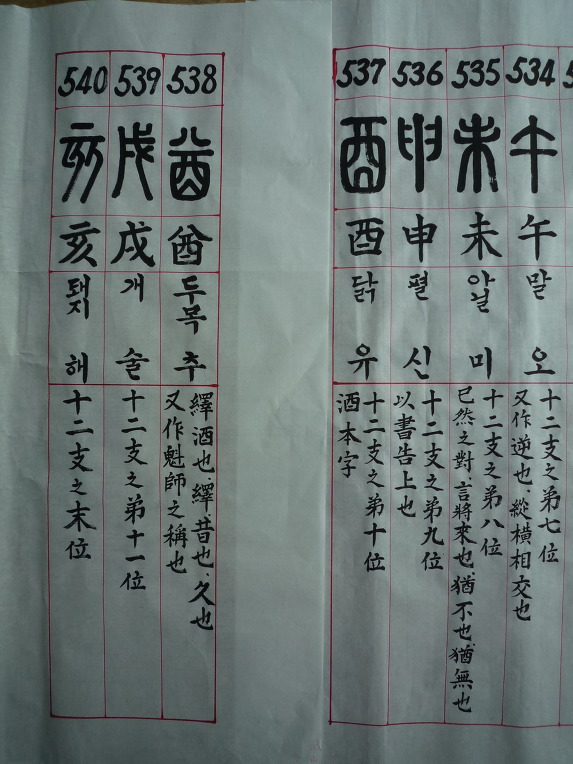 534
午
午
말
오
十二支之弟七位
又作逆也、縱橫相交也
535
未
未
아닐
미
十二支之弟八位
已然之對、言將來也、猶不也、猶無也
536
申
申
펼
신
十二支之弟九位
以書告上也
537
酉
酉
닭
유
十二支之弟十位
酒本字
538
酋
酋
두목
추
繹酒也繹、昔也、久也
又作魁師之稱也
539
戌
戌
개
술
十二支之弟十一位
540
亥
亥
돼지
해
十二支之末位